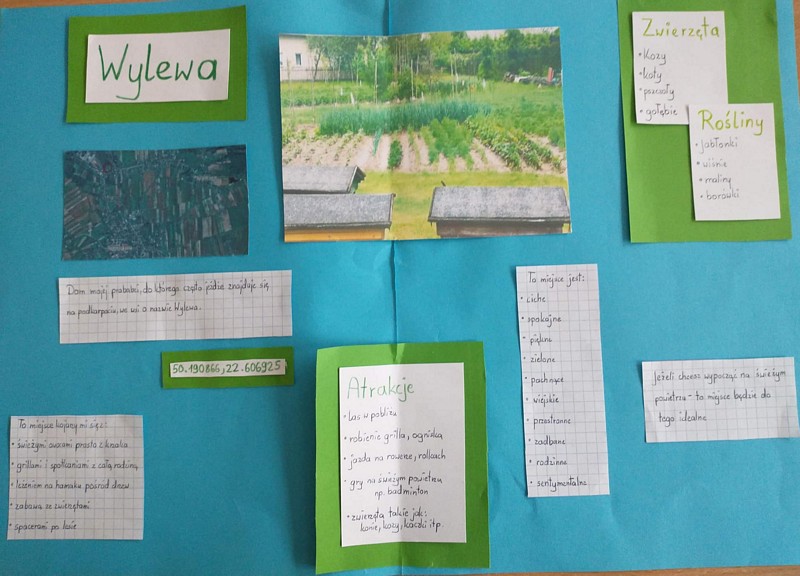 Wylewa
Zwierzęta
• Kozy
• koty
• pszczoły
• gołębie
Rośliny
• jabłonki
• wiśnie
• maliny
• borówki
Dom mojej prababci, do którego często jeżdżę znajduje się
na podkarpaciu, we wsi o nazwie Wylewa.
50.190866, 22.606925
To miejsce kojarzy mi się z:
• świeżymi owocami prosto z krzaka
• grillami i spotkaniami z całą rodziną
• leżeniem na hamaku pośród drzew
• zabawą ze zwierzętami
• spacerami po lesie
Atrakcje
• Las w pobliżu
• robienie grilla, ogniska
• jazda na rowerze, rolkach
• gry na świeżym powietrzu
np. badminton
• zwierzęta takie jak:
konie, kozy, kaczki itp.
To miejsce jest:
• ciche
• spokojne
• piękne
• zielone
• pachnące
• wiejskie
• przestronne
• zadbane
• rodzinne
• sentymentalne
Jeżeli chcesz wypocząć na świeżym
powietrzu - to miejsce będzie do
tego idealne